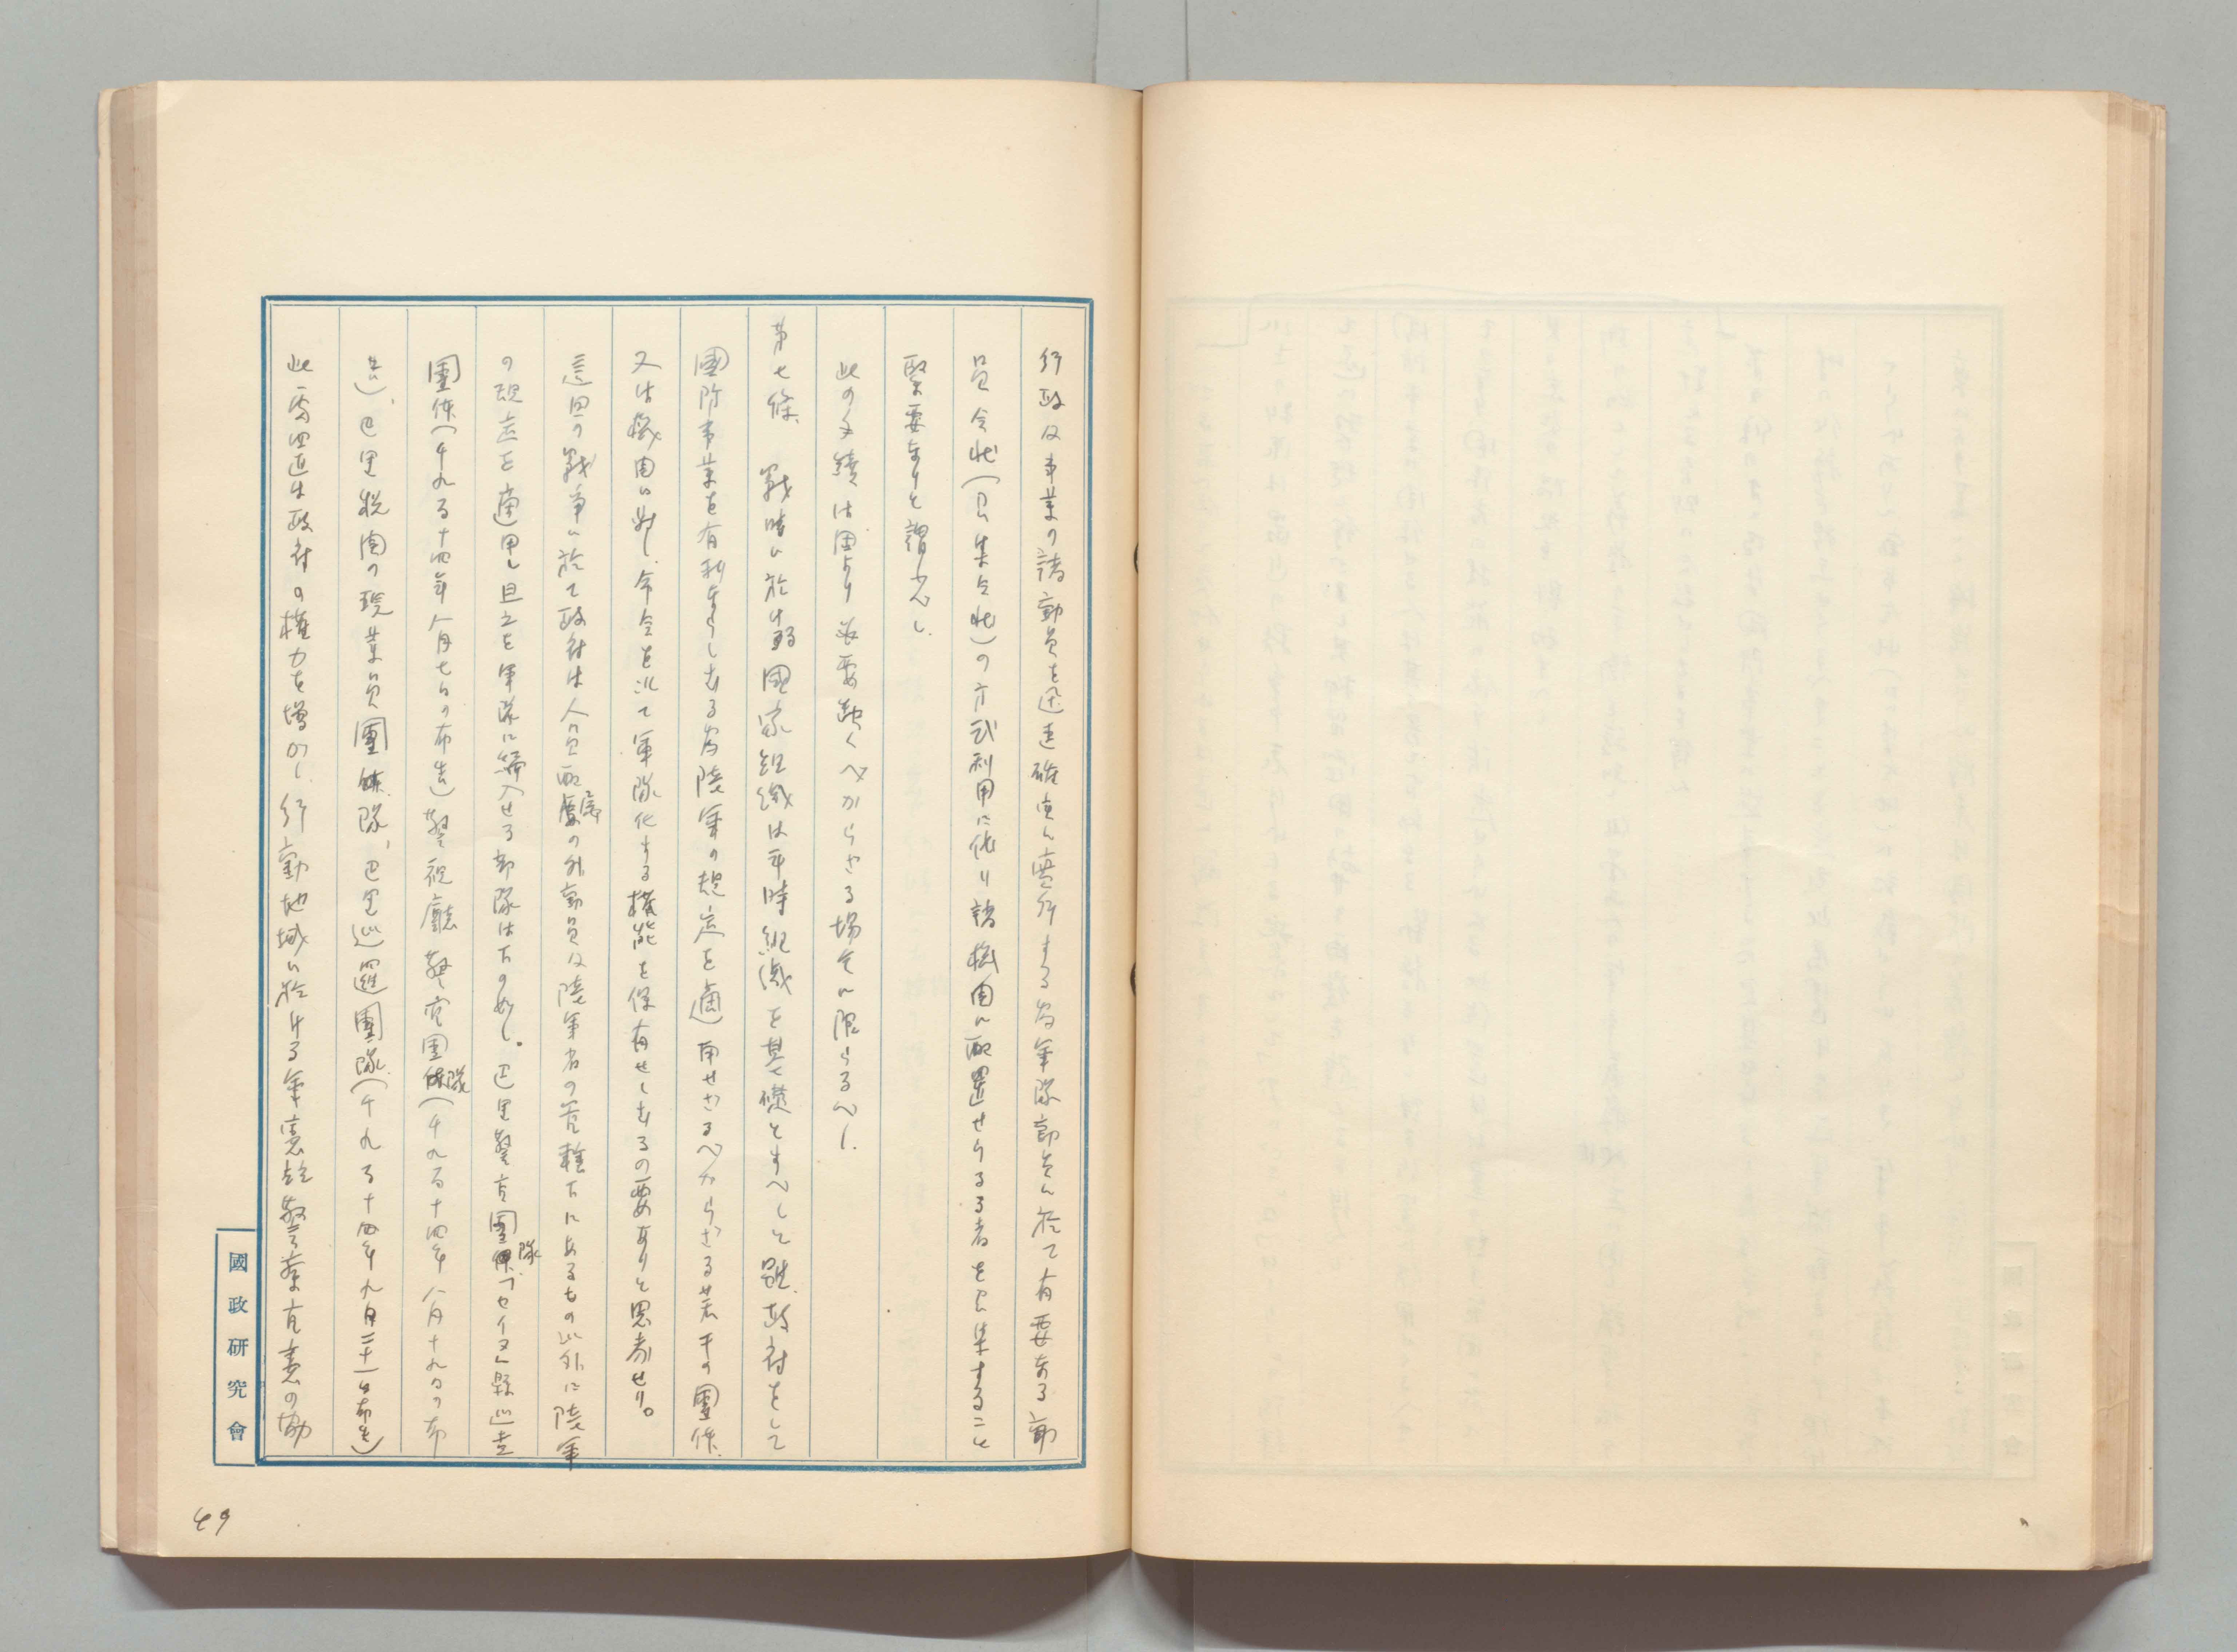 行政及事業の諸動員を迅速確実に実行する為軍隊動員に於て有要なる動
員令状(召集令状)の方式利用に依り諸機関に配置せらるる者を召集すること
緊要なりと謂ふへし
此の手続は固より必要欠くへからさる場合に限らるへし
第七條、戦時に於ける国家組織は平時組織を基礎とすへしと雖政府をして
國防事業を有利ならしむる為陸軍の規定を適用せさるべからざる若干の團体
又は機関に対し命令を以て軍隊化する権能を保有せしむるの要ありと思考せり。
這回の戦争に於て政府は人員配属の外動員及陸軍省の管轄下にあるもの以外に陸軍
の規定を適用し且之を軍隊に編入せる部隊は下の如し。巴里警官團隊「セイヌ」縣巡査
團体(千九百十四年八月七日の布告)警視廳警官團隊(千九百十四年八月十九日の布
告)、巴里税関の現業員團隊、巴里巡邏團隊(千九百十四年九月二十一日布告)
此処置は政府の権力を増加し行動地域に於ける軍憲並警察官憲の協
國政研究會
49